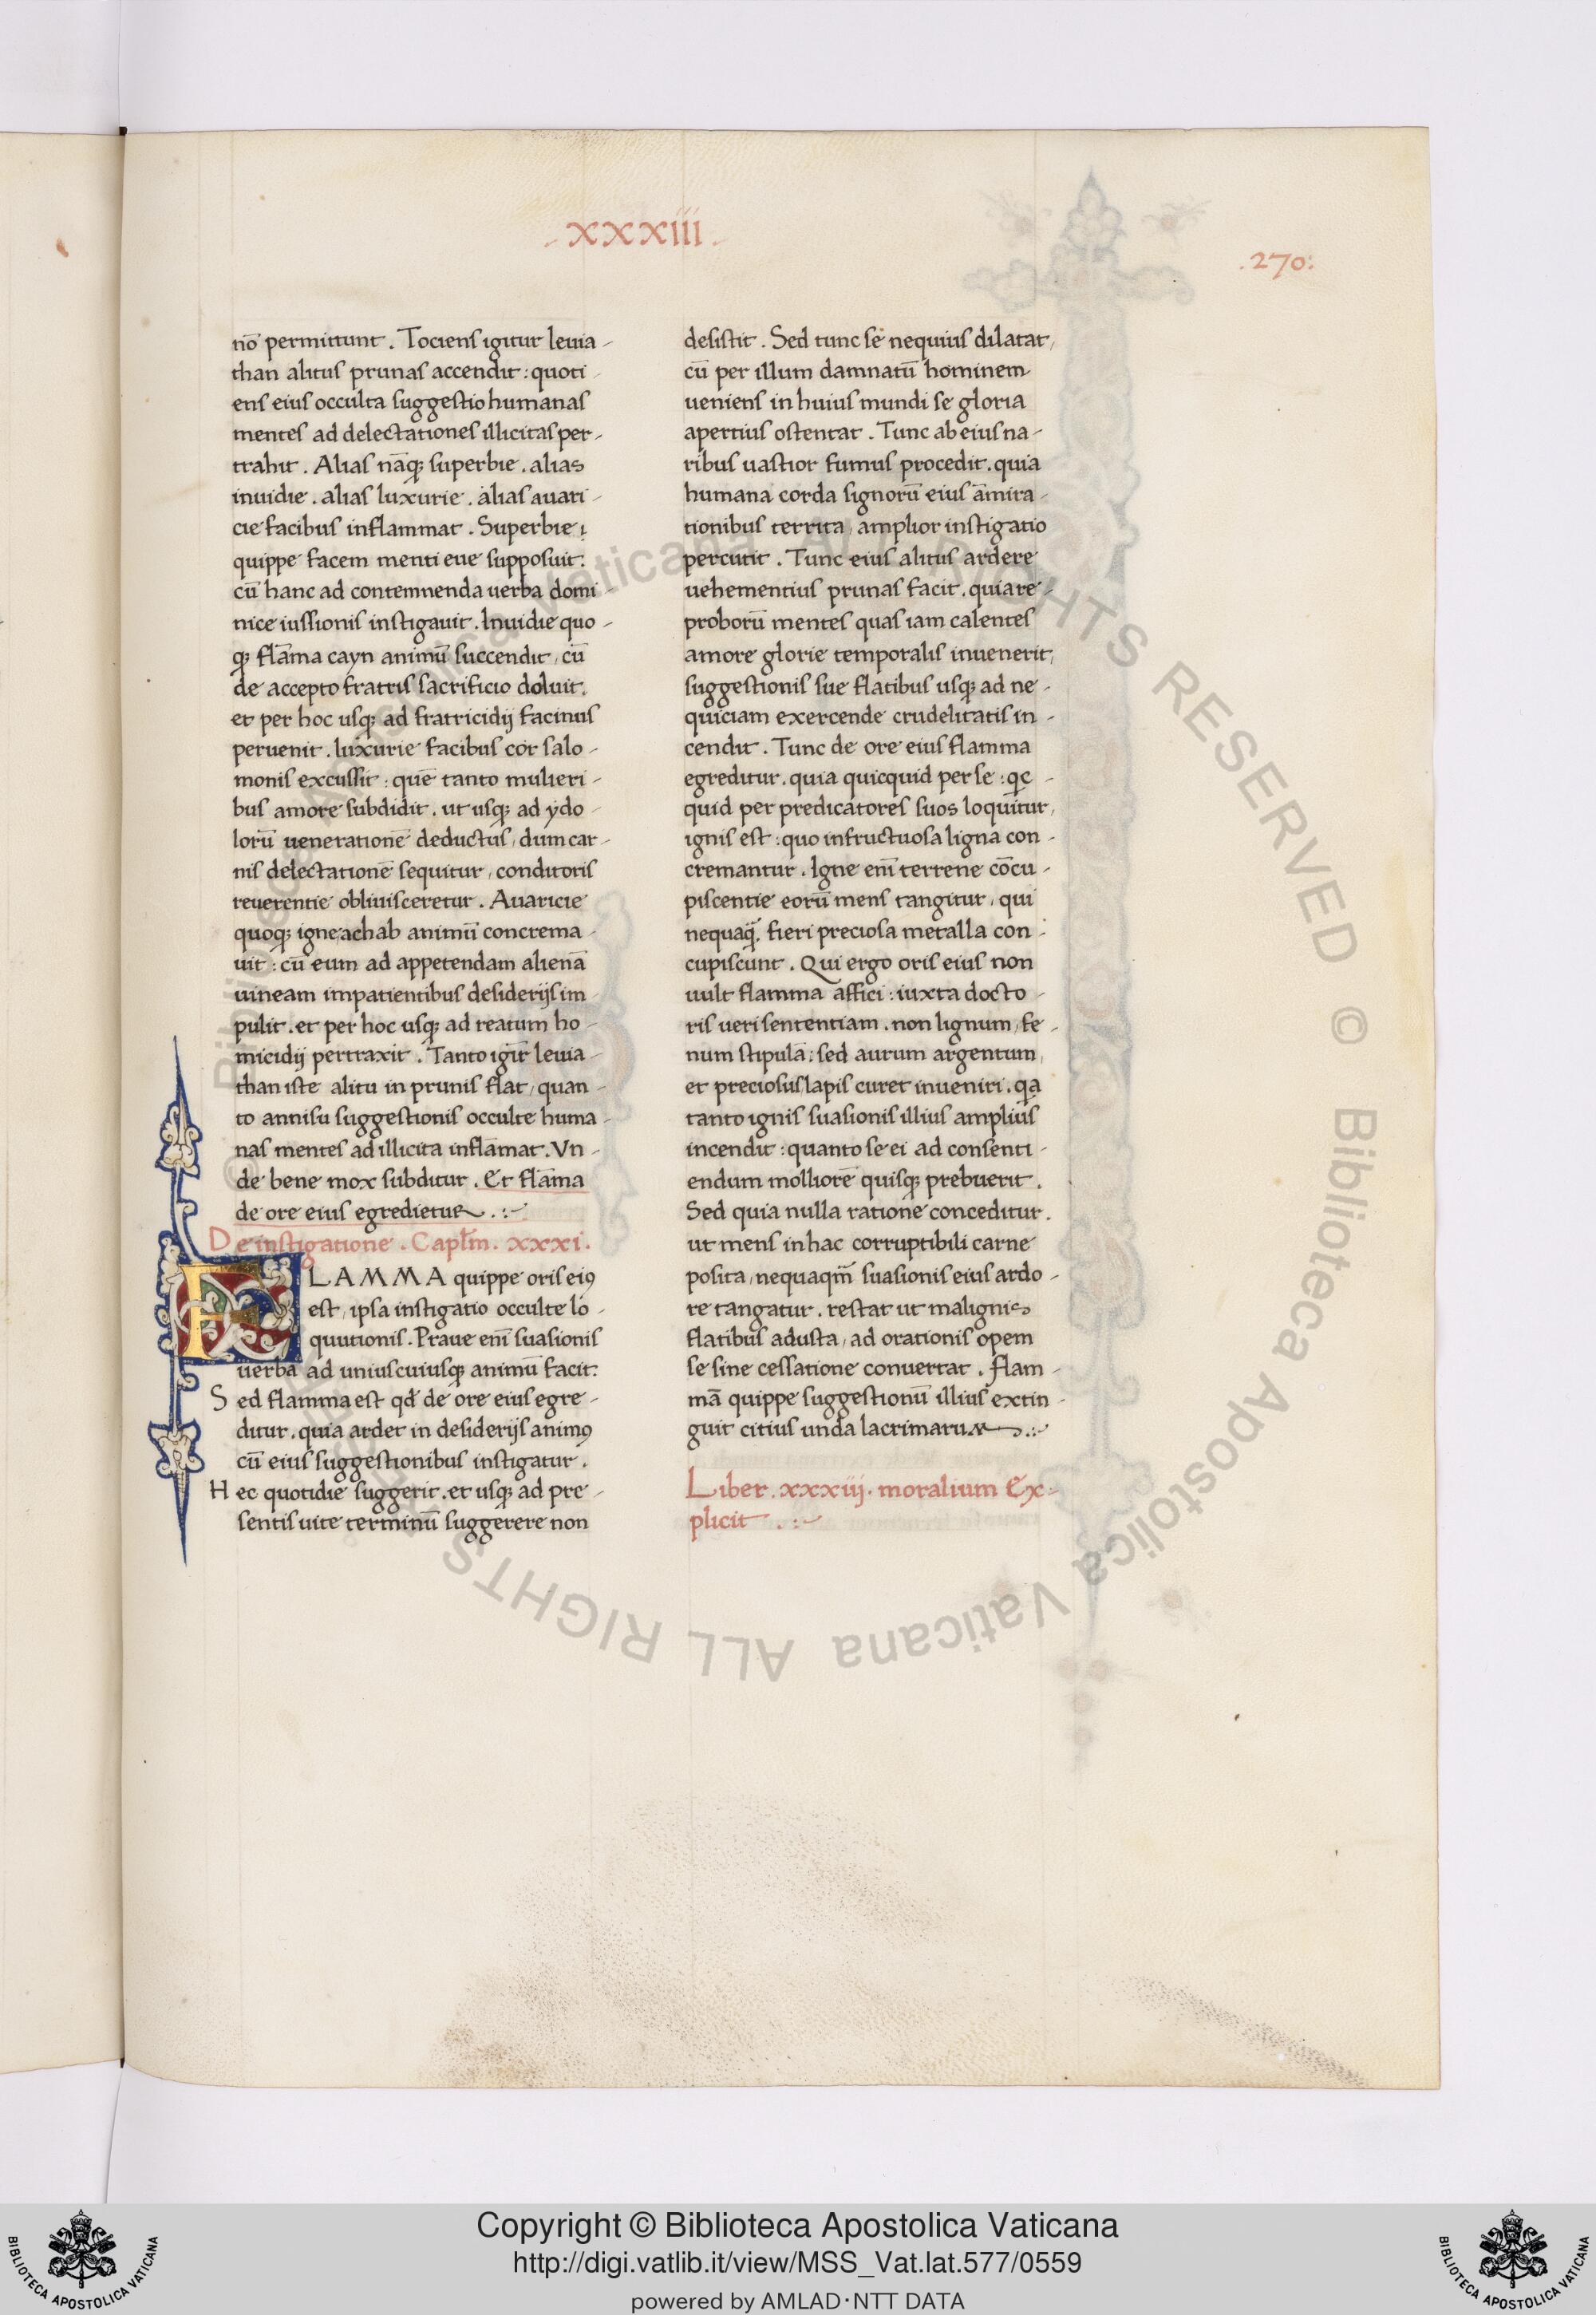 .xxxiii.
.270:
nō permittunt. Tociens igitur leuia-
than alitus prunas accendit: quoti-
ens eius occulta suggestio humanas
mentes ad delectationes illicitas per-
trahit. Alias nāq; superbie. alias
inuidie. alias luxurie. alias auari-
cie facibus inflammat. Superbie
quippe facem menti eue supposuit:
cū hanc ad contemnenda uerba domi-
nice iussionis instigauit. Inuidie quo-
q; flāma cayn animū succendit, cū
de accepto fratris sacrificio doluit.
et per hoc usq; ad fratricidij facinus
peruenit. luxurie facibus cor salo-
monis excussit: quē tanto mulieri-
bus amore subdidit. ut usq; ad ydo-
lorū uenerationē deductus, dum car-
nis delectationē sequitur, conditoris
reuerentie obliuisceretur. Auaricie
quoq; igne achab animū concrema-
uit: cū eum ad appetendam alienā
uineam impatientibus desiderijs im-
pulit. et per hoc usq; ad reatum ho-
micidij pertraxit. Tanto igit̄ leuia-
than iste alitu in prunis flat, quan-
to annisu suggestionis occulte huma-
nas mentes ad illicita inflāmat. Vn-
de bene mox subditur. Et flāma
de ore eius egredietur .:~
De instigatione. Capl̄m. xxxi.
FLAMMA quippe oris ei9
est, ipsa instigatio occulte lo-
quutionis. Praue enī suasionis
uerba ad uniuscuiusq; animū facit:
Sed flamma est qd̄ de ore eius egre-
ditur. quia ardet in desiderijs anim9
cū eius suggestionibus instigatur.
Hec quotidie suggerit. et usq; ad pre-
sentis uite terminū suggerere non
desistit. Sed tunc se nequius dilatat,
cū per illum damnatū hominem
ueniens in huius mundi se gloria
apertius ostentat. Tunc ab eius na-
ribus uastior fumus procedit. quia
humana corda signorū eius āmira-
tionibus territa, amplior instigatio
percutit. Tunc eius alitus ardere
uehementius prunas facit. quia re-
proborū mentes quas iam calentes
amore glorie temporalis inuenerit,
suggestionis sue flatibus usq; ad ne-
quiciam exercende crudelitatis in-
cendit. Tunc de ore eius flamma
egreditur. quia quicquid per se: qc-
quid per predicatores suos loquītur,
ignis est: quo infructuosa ligna con-
cremantur. Igne enī terrene cōcu-
piscentie eorū mens tangitur, qui
nequaq̄. fieri preciosa metalla con-
cupiscunt. Qui ergo oris eius non
uult flamma affici: iuxta docto-
ris ueri sententiam. non lignum, fe-
num stipulā: sed aurum argentum,
et preciosus lapis curet inueniri. qa
tanto ignis suasionis illius amplius
incendit: quanto se ei ad consenti-
endum molliorē quisq; prebuerit.
Sed quia nulla ratione conceditur.
ut mens in hac corruptibili carne
posita, nequaqm̄ suasionis eius ardo-
re tangatur. restat ut malignis
flatibus adusta, ad orationis opem
se sine cessatione conuertat. flam-
mā quippe suggestionū illius extin-
guit citius unda lacrimarum .:~
Liber. xxxiij. moralium Ex-
plicit .:~
© Biblioteca Apostolica Vaticana ALL RIGHTS RESERVED
© Biblioteca Apostolica Vaticana ALL RIGHTS RESERVED
Copyright © Biblioteca Apostolica Vaticana
http://digi.vatlib.it/view/MSS_Vat.lat.577/0559
powered by AMLAD·NTT DATA
BIBLIOTECA APOSTOLICA VATICANA
BIBLIOTECA APOSTOLICA VATICANA